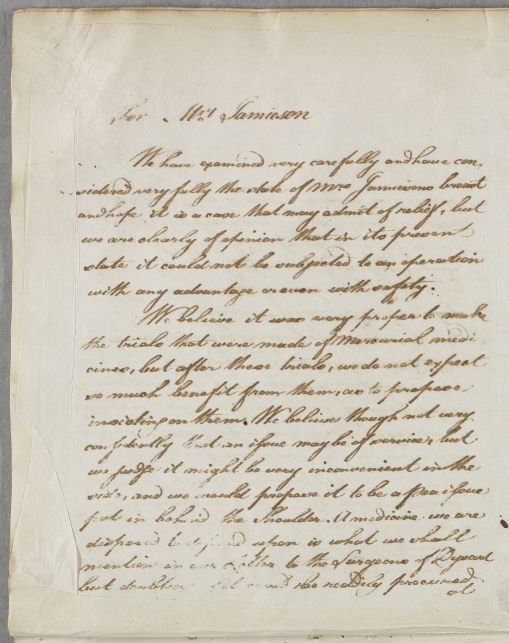 For Mrs Jamieson
We have examined very carefully and have con,
sidered very fully the state of Mrs Jamiesons breast
and hope it is a case that may admit of relief, but
we are clearly of opinion that in its present
state it could not be subjected to an operation
with any advantage or even with safety.
We believe it was very proper to make
the trials that were made of Mercurial medi
cines, but after these trials, we do not expect
so much benefit from them, as to propose
insisting on them. We believe though not very
confidently that an issue may be of service, but
we judge it might be very inconvenient in the
side, and we would propose it to be a pea issue
put in behind the shoulder. A medicine we are
disposed to depend upon is what we shall
mention in our letter to the Surgeons of
but doubtless readily procured
at